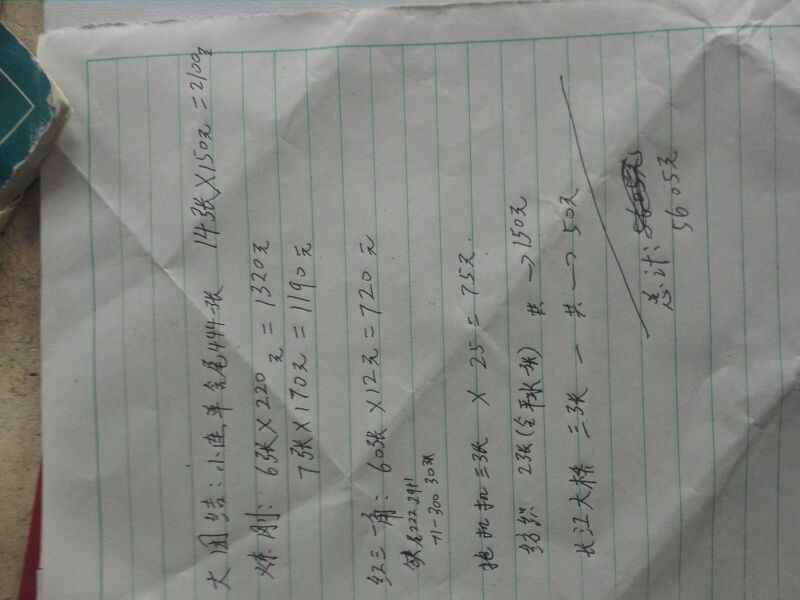 大团结: 小连单全尾444张 14张×150元=2100元
炼刚: 6张×220元=1320元
7张×170元=1190元
红三一角: 60张×12元=720元
71-300 30张
拖拉机三张×25=75元
纺织 23张(全平水张) 共→150元
长江大桥 三张 一共一→50元
总计: 5605元
5605元